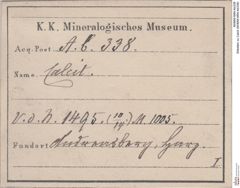 K. K. Mineralogisches Museum.
Acq. Post A. b. 338.
Name Calcit.
V. d. N. 1495. M. 1005.
Fundort Andreasberg, Harz.
I